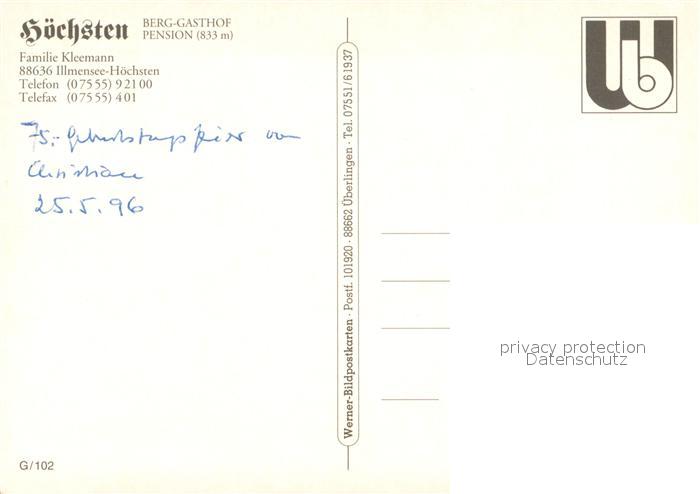 Höchsten BERG-GASTHOF
PENSION (833 m)
Familie Kleemann
88636 Illmensee-Höchsten
Telefon (07555) 92100
Telefax (07555) 401
75.-Geburtstagsfeier von
Christian
25.5.96
G/102
Werner-Bildpostkarten · Postf. 101920 · 88662 Überlingen · Tel. 07551/61937
privacy protection
Datenschutz